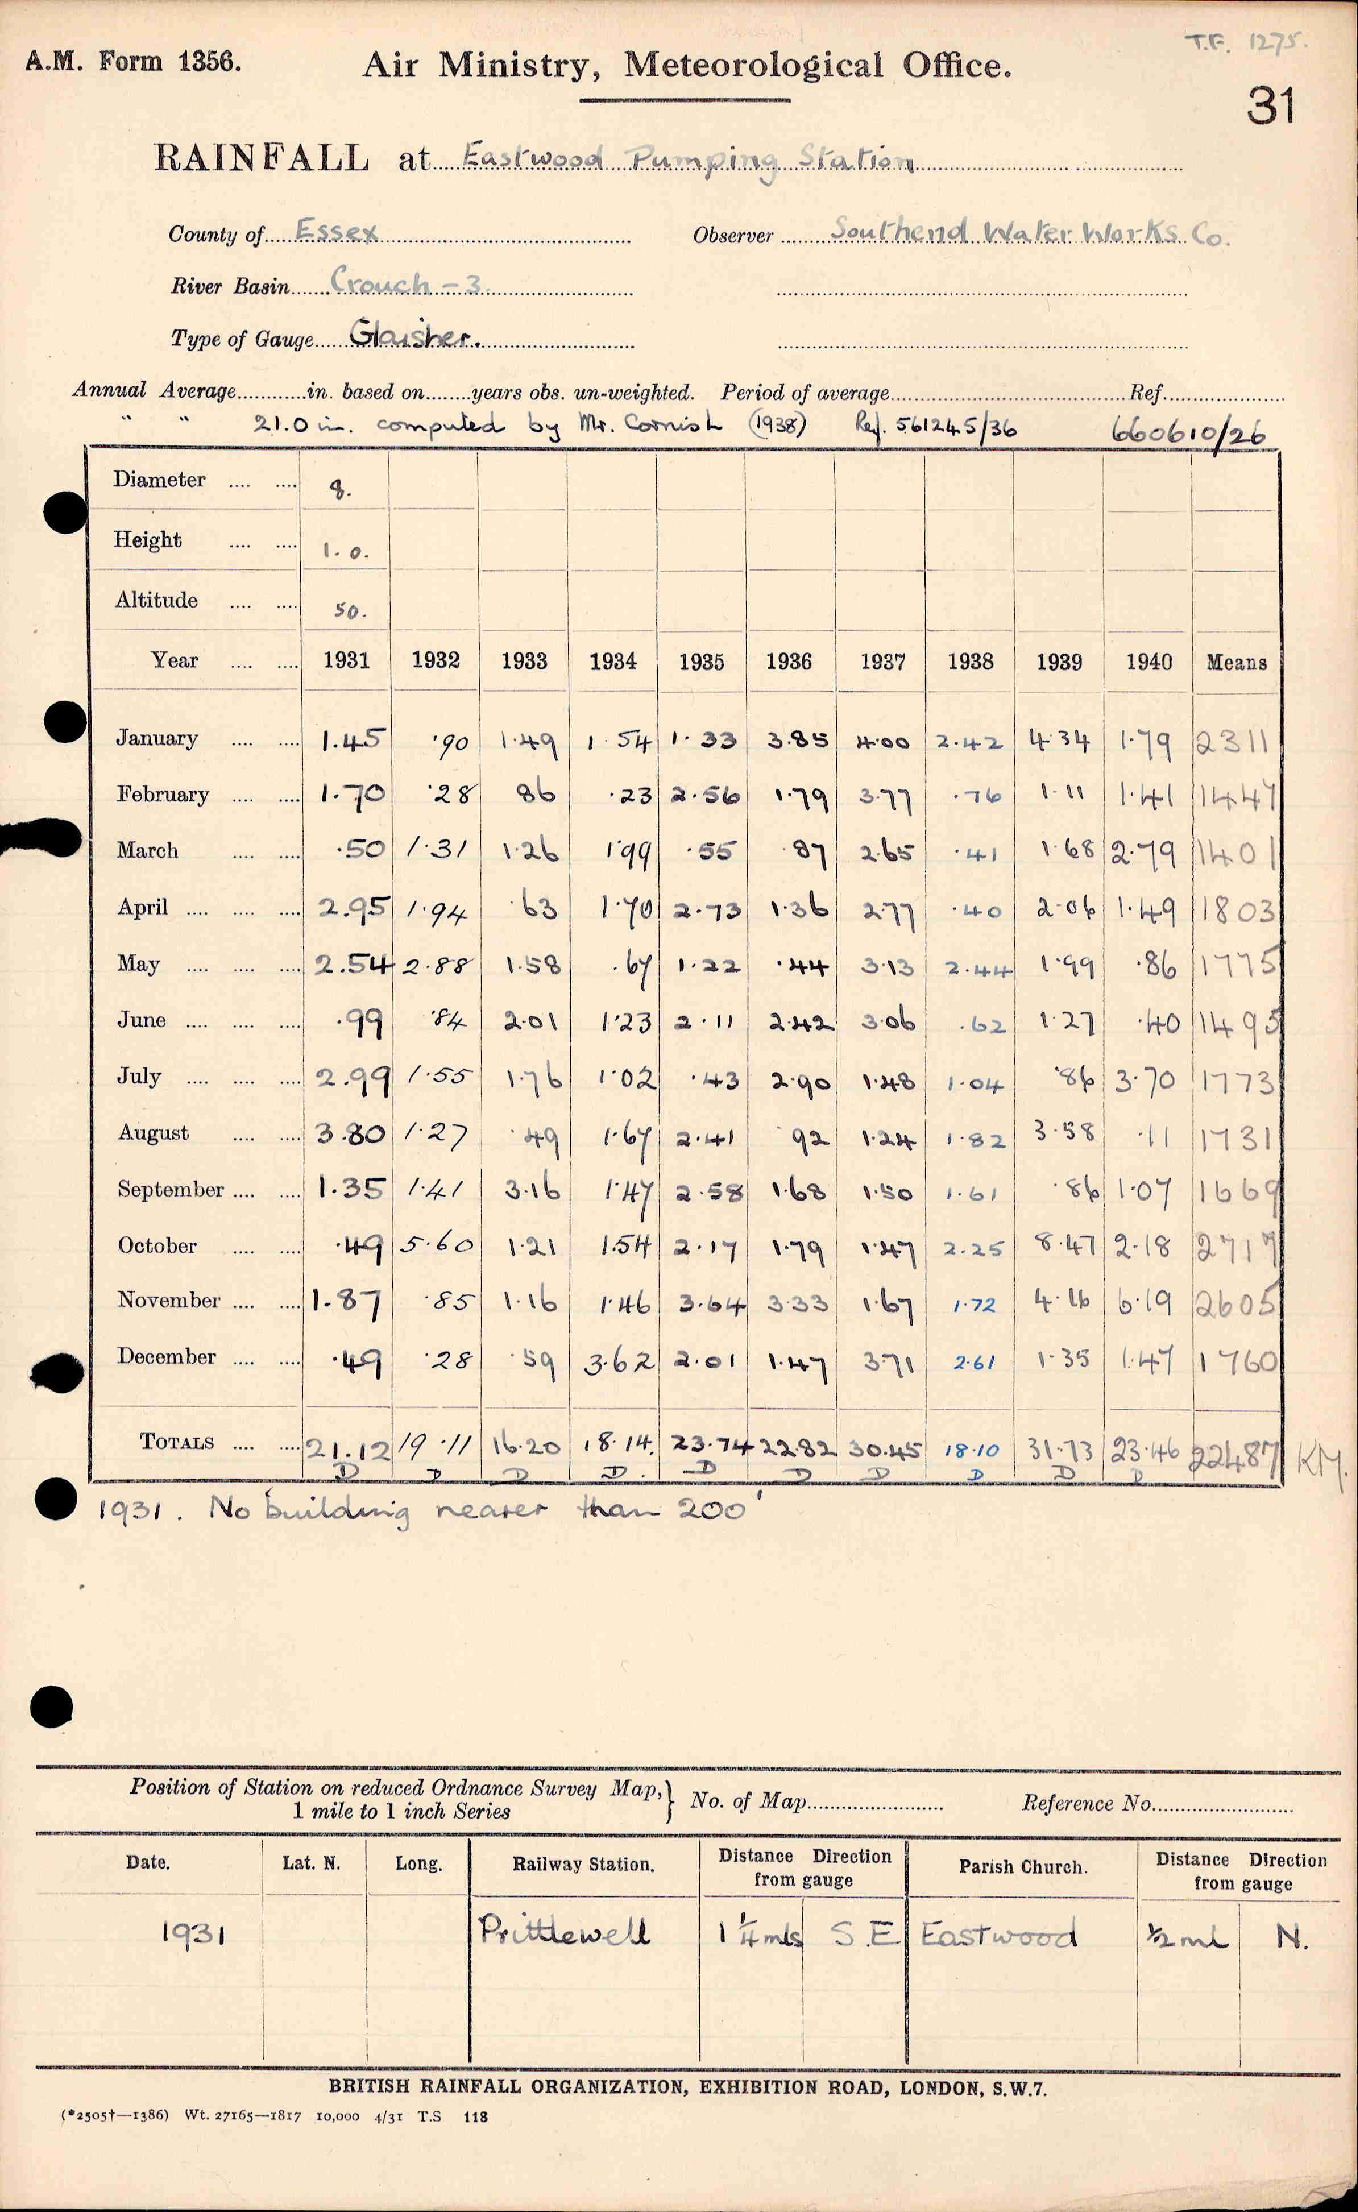 T.F. 1275.
A.M. Form 1356. Air Ministry, Meteorological Office.
31
RAINFALL at Eastwood Pumping Station
County of Essex Observer Southend Water Works Co.
River Basin Crouch - 3
Type of Gauge Glaisher.
Annual Average in. based on years obs. un-weighted. Period of average Ref.
" " 21.0 in. computed by Mr. Cornish (1938) Ref. 561245/36 660610/26
Diameter .... .... 8.
Height .... .... 1.0.
Altitude .... .... 50.
Year .... .... 1931 1932 1933 1934 1935 1936 1937 1938 1939 1940 Means
January .... .... 1.45 .90 1.49 1.54 1.33 3.85 4.00 2.42 4.34 1.79 2311
February .... .... 1.70 .28 86 .23 2.56 1.79 3.77 .76 1.11 1.41 1447
March .... .... .50 1.31 1.26 1.99 .55 .87 2.65 .41 1.68 2.79 1401
April .... .... .... 2.95 1.94 .63 1.70 2.73 1.36 2.77 .40 2.06 1.49 1803
May .... .... .... 2.54 2.88 1.58 .67 1.22 .44 3.13 2.44 1.99 .86 1775
June .... .... .... .99 .84 2.01 1.23 2.11 2.42 3.06 .62 1.27 .40 1495
July .... .... .... 2.99 1.55 1.76 1.02 .43 2.90 1.48 1.04 .86 3.70 1773
August .... .... 3.80 1.27 .49 1.67 2.41 92 1.24 1.82 3.58 .11 1731
September .... .... 1.35 1.41 3.16 1.47 2.58 1.68 1.50 1.61 .86 1.07 1669
October .... .... .49 5.60 1.21 1.54 2.17 1.79 1.47 2.25 8.47 2.18 2717
November .... .... 1.87 .85 1.16 1.46 3.64 3.33 1.67 1.72 4.16 6.19 2605
December .... .... .49 .28 .59 3.62 2.01 1.47 3.71 2.61 1.35 1.47 1760
TOTALS .... .... 21.12 19.11 16.20 18.14. 23.74 22.82 30.45 18.10 31.73 23.46 22487 KM.
D D D D. D D D D D D
1931. No building nearer than 200'
Position of Station on reduced Ordnance Survey Map,
1 mile to 1 inch Series } No. of Map Reference No.
Date. Lat. N. Long. Railway Station. Distance Direction from gauge Parish Church. Distance Direction from gauge
1931 Prittlewell 1 1/4 mls S.E Eastwood 1/2 ml N.
BRITISH RAINFALL ORGANIZATION, EXHIBITION ROAD, LONDON, S.W.7.
(*2505†—1386) Wt. 27165—1817 10,000 4/31 T.S 118